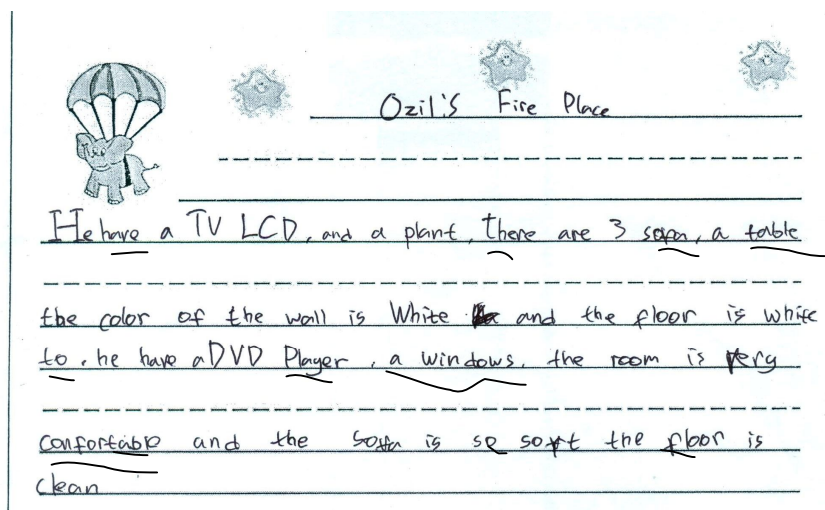 Ozil's Fire Place
He have a TV LCD, and a plant, there are 3 sofa, a table
the color of the wall is White and the floor is white
to. he have a DVD Player, a windows. the room is very
confortable and the sofa is so soft the floor is
clean